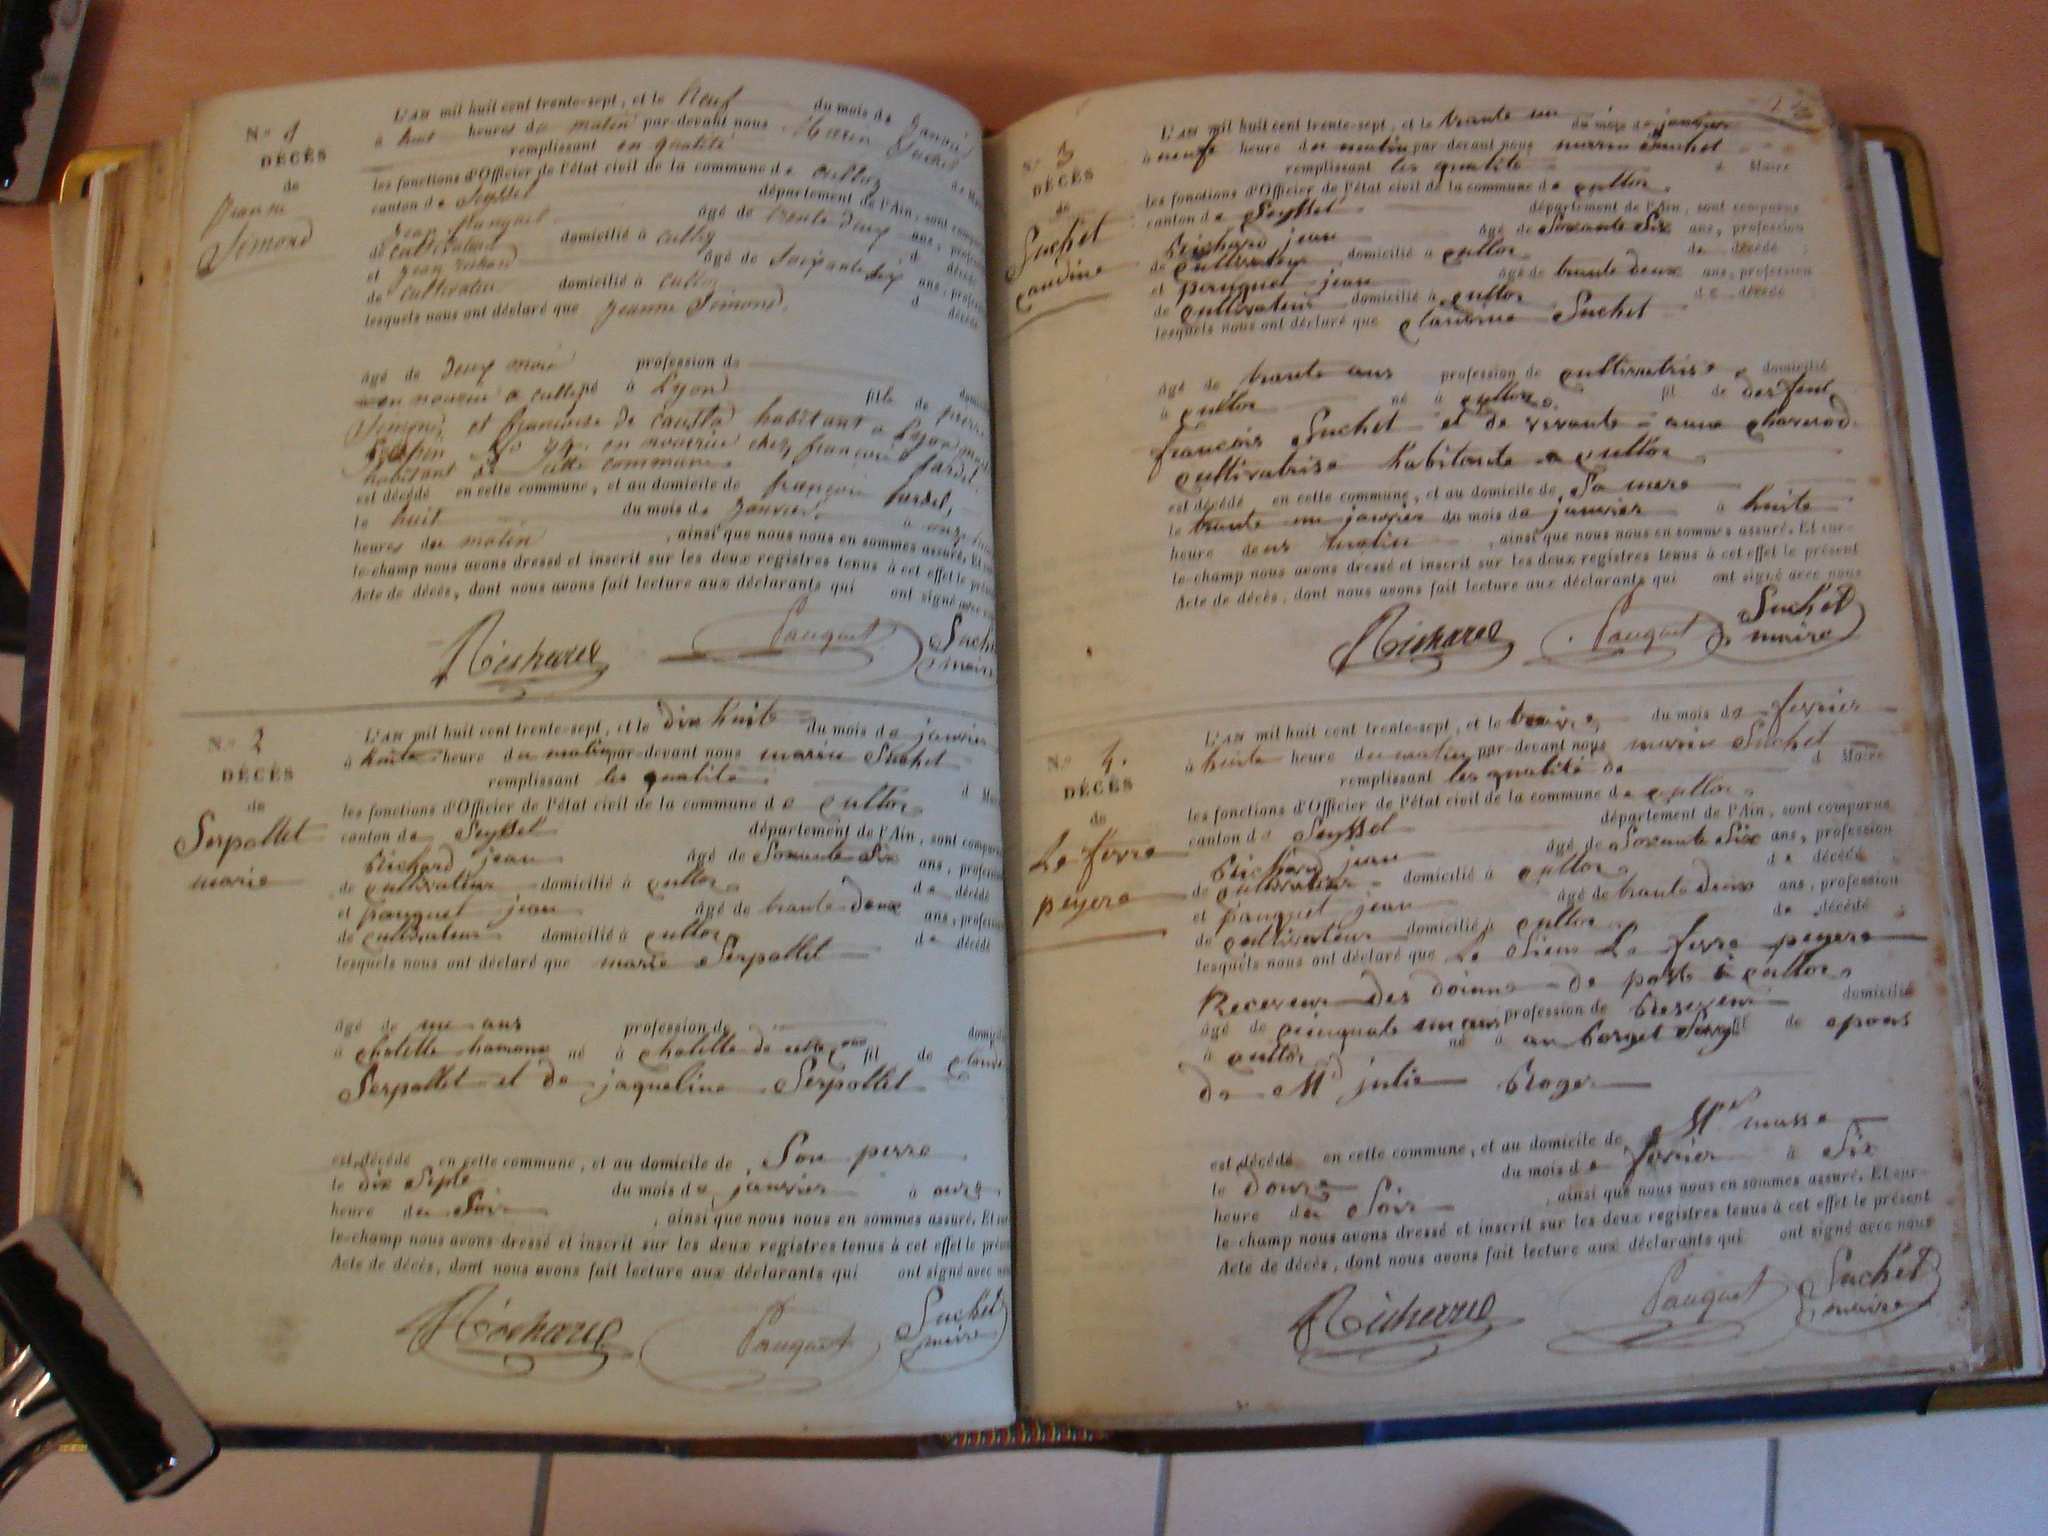 N.o 1
DÉCÈS
de
Jeanne
Simond
L'AN mil huit cent trente-sept, et le Neuf du mois de Janvier
à huit heures du matin par-devant nous Marin Suchet
remplissant en qualité de Maire
les fonctions d'Officier de l'état civil de la commune de culloz
canton de Seyssel département de l'Ain, sont comparus
Jean Pauquet âgé de trente deux ans, profession
de cultivateur domicilié à culloz d décédé
et Jean richard âgé de Soixante six ans, profession
de cultivateur domicilié à culloz d décédé
lesquels nous ont déclaré que Jeanne Simond,
âgé de Deux mois profession de domicilié
en nourice a culloz né à Lyon fille de pierre
Simond et françoise de habitant a Lyon
N.o 94. en nourrice chez françois fardel
habitant de cette commune
est décédé en cette commune, et au domicile de françois fardel,
le huit du mois de Janvier à onze
heures du matin , ainsi que nous nous en sommes assuré. Et sur-
le-champ nous avons dressé et inscrit sur les deux registres tenus à cet effet le présent
Acte de décès, dont nous avons fait lecture aux déclarants qui ont signé avec nous
Richard Pauquet Suchet
maire
N.o 2
DÉCÈS
de
Serpollet
marie
L'AN mil huit cent trente-sept, et le dix huit du mois de janvier
à huite heure du matin par-devant nous marin Suchet
remplissant les qualité d Maire
les fonctions d'Officier de l'état civil de la commune de cullos
canton de Seyssel département de l'Ain, sont comparus
Richard jean âgé de Soxante Six ans, profession
de cultivateur domicilié à cullos de décédé
et pauquet jean âgé de trante deux ans, profession
de cultivateur domicilié à cullos de décédé
lesquels nous ont déclaré que marie Serpollet
âgé de un ans profession de domicilié
à né à fil de claude
Serpollet et de jaqueline Serpollet
est décédé en cette commune, et au domicile de Son perre
le dix Septe du mois de janvier à onze
heure du Soir , ainsi que nous nous en sommes assuré. Et sur-
le-champ nous avons dressé et inscrit sur les deux registres tenus à cet effet le présent
Acte de décès, dont nous avons fait lecture aux déclarants qui ont signé avec nous
Richard Pauquet Suchet
maire
N.o 3
DÉCÈS
de
Suchet
claudine
L'AN mil huit cent trente-sept, et le trante un du mois de janvier
à neufe heure du matin par-devant nous marin Suchet
remplissant les qualité d Maire
les fonctions d'Officier de l'état civil de la commune de cullos
canton de Seyssel département de l'Ain, sont comparus
Richard jean âgé de Soxante Six ans, profession
de cultivateur domicilié à cullos de décédé
et pauquet jean âgé de trante deux ans, profession
de cultivateur domicilié à cullos de décédé
lesquels nous ont déclaré que claudine Suchet
âgé de trante ans profession de cultivatrise domicilié
à cullos né à cullos fil de desfeut
francois Suchet et de vivante anne
cultivatrise habitante a cullos
est décédé en cette commune, et au domicile de Sa mere
le trante un janvier du mois de janvier à huite
heure de us matin , ainsi que nous nous en sommes assuré. Et sur-
le-champ nous avons dressé et inscrit sur les deux registres tenus à cet effet le présent
Acte de décès, dont nous avons fait lecture aux déclarants qui ont signé avec nous
Richard Pauquet Suchet
maire
N.o 4.
DÉCÈS
de
Le ferre
peyere
L'AN mil huit cent trente-sept, et le treize du mois de fevrier
à huite heure du matin par-devant nous marin Suchet
remplissant les qualité de d Maire
les fonctions d'Officier de l'état civil de la commune de cullos
canton de Seyssel département de l'Ain, sont comparus
Richard jean âgé de Soxante Six ans, profession
de cultivateur domicilié à cullos de décédé
et pauquet jean âgé de trante deux ans, profession
de cultivateur domicilié à cullos de décédé
lesquels nous ont déclaré que Le Sieur Le ferre peyere
Receveur des doinne de poste a cullos
âgé de cinquate un ans profession de Reseveur domicilié
à cullos né à au borget fil de epous
de Md julie Roger
est décédé en cette commune, et au domicile de Mr masse
le douze du mois de fevrier à Six
heure du Soir , ainsi que nous nous en sommes assuré. Et sur-
le-champ nous avons dressé et inscrit sur les deux registres tenus à cet effet le présent
Acte de décès, dont nous avons fait lecture aux déclarants qui ont signé avec nous
Richard Pauquet Suchet
maire